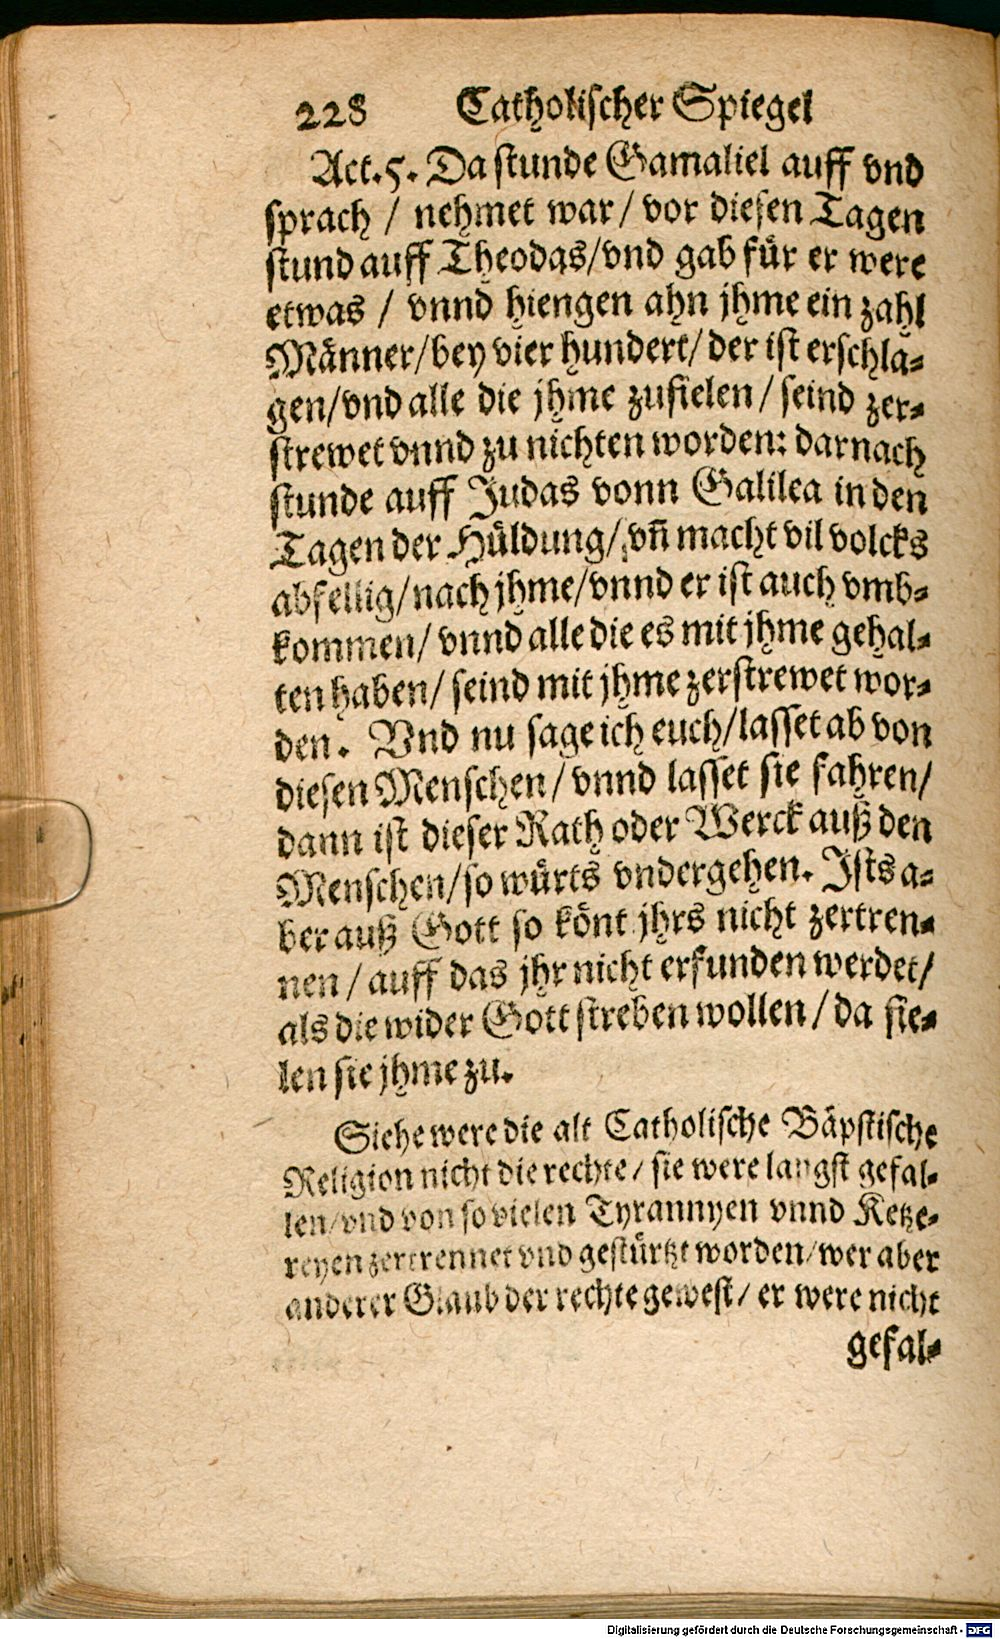 228 Catholischer Spiegel
Act. 5. Da stunde Gamaliel auff vnd
sprach / nehmet war / vor diesen Tagen
stund auff Theodas/vnd gab für er were
etwas / vnnd hiengen ahn jhme ein zahl
Männer/bey vier hundert/ der ist erschla-
gen/vnd alle die jhme zufielen / seind zer-
strewet vnnd zu nichten worden: darnach
stunde auff Judas vonn Galilea in den
Tagen der Hüldung/ vñ macht vil volcks
abfellig/nach jhme/vnnd er ist auch vmb-
kommen/ vnnd alle die es mit jhme gehal-
ten haben/ seind mit jhme zerstrewet wor-
den. Vnd nu sage ich euch/lasset ab von
diesen Menschen / vnnd lasset sie fahren/
dann ist dieser Rath oder Werck auß den
Menschen/so würts vndergehen. Ists a-
ber auß Gott so könt jhrs nicht zertren-
nen / auff das jhr nicht erfunden werdet/
als die wider Gott streben wollen / da fie-
len sie jhme zu.
Siehe were die alt Catholische Bäpstische
Religion nicht die rechte/ sie were langst gefal-
len/vnd von so vielen Tyrannyen vnnd Ketze-
reyen zertrennet vnd gestürtzt worden/wer aber
anderer Glaub der rechte gewest/ er were nicht
gefal-
Digitalisierung gefördert durch die Deutsche Forschungsgemeinschaft - DFG